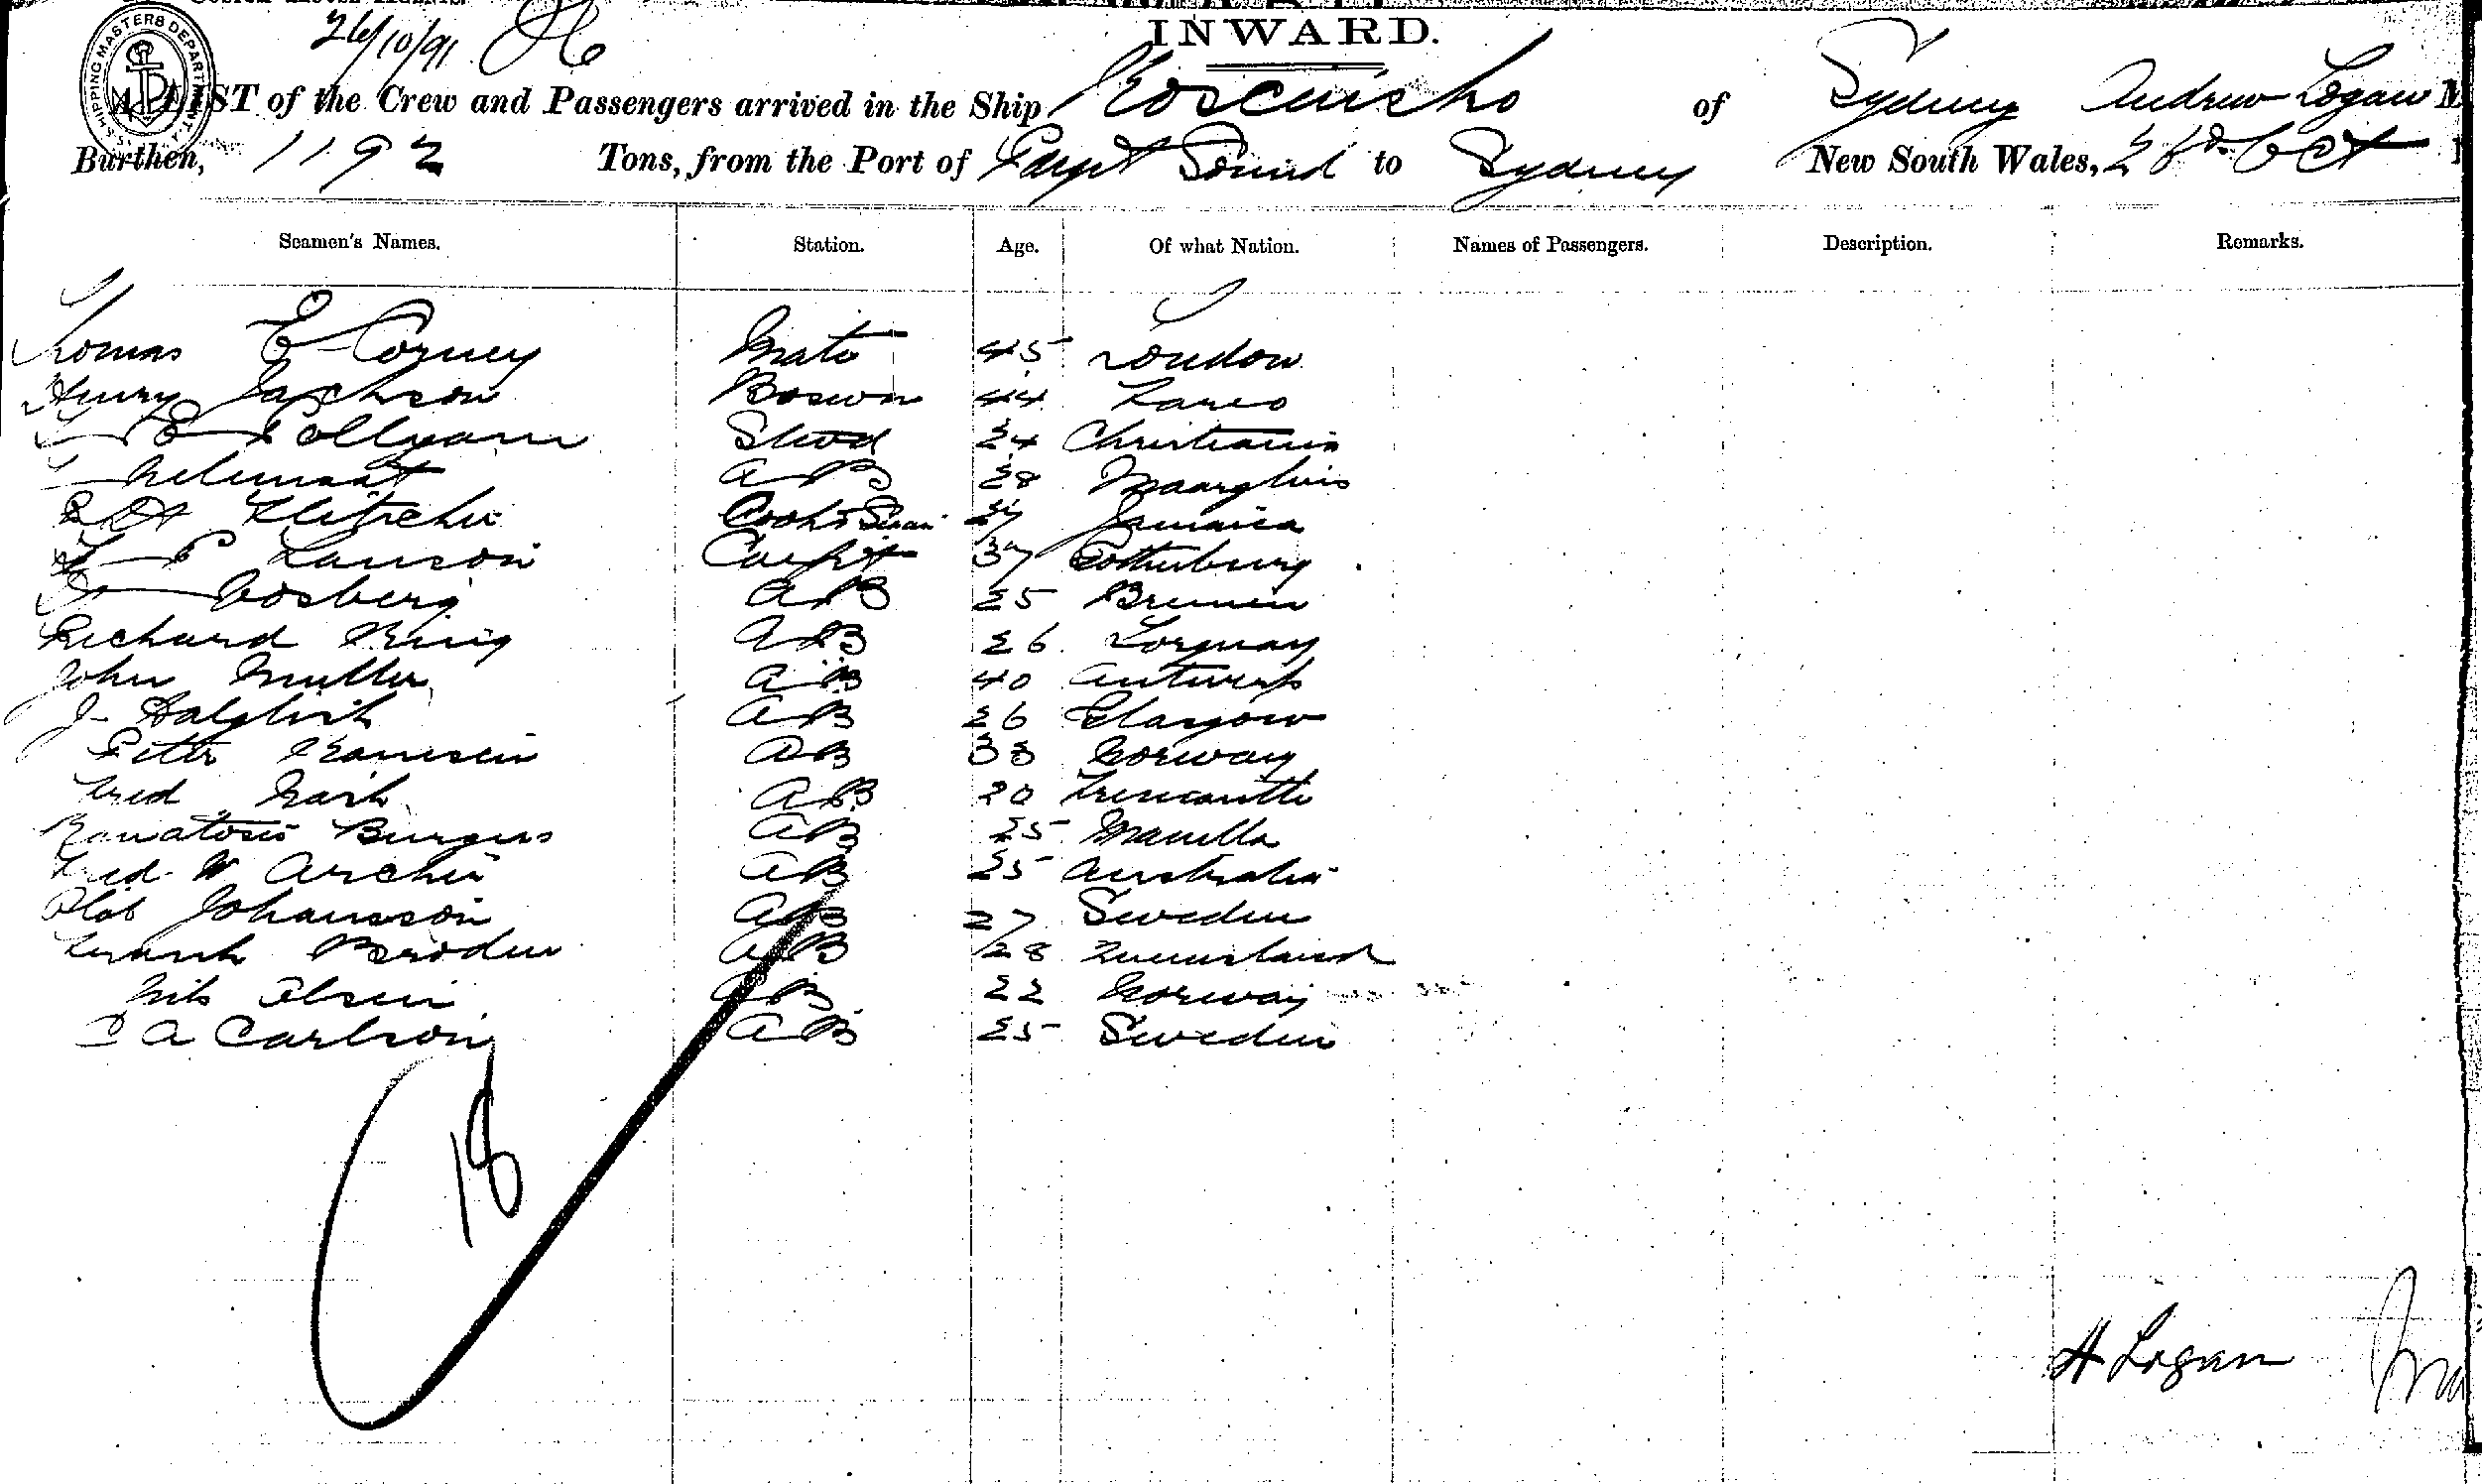 26/10/91
SHIPPING MASTERS DEPARTMENT
INWARD.
LIST of the Crew and Passengers arrived in the Ship Kosciusko of Sydney Andrew Logan
Burthen, 1192 Tons, from the Port of Puget Sound to Sydney New South Wales, Oct
Seamen's Names. Station. Age. Of what Nation. Names of Passengers. Description. Remarks.
Thomas E Corney Mate 45 London
Henry Jackson Boswn 44
Stwd 24 Christiania
A B 28
Cook & Jamaica
Lawson Carpt 37 Gothenburg
Vosberg A B 25 Bremen
Richard King A B 26 Torquay
John Muller A B 40 Antwerp
J A B 26 Glasgow
Peter A B 33 Norway
Fred Nash A B 20 Fremantle
Burgess A B 25 Manilla
Fred W Archer A B 25 Australia
Olof Johansson A B 27 Sweden
Frank Broden A B 28 Queensland
Nils Olsen A B 22 Norway
C A Carlson A B 25 Sweden
18
A Logan